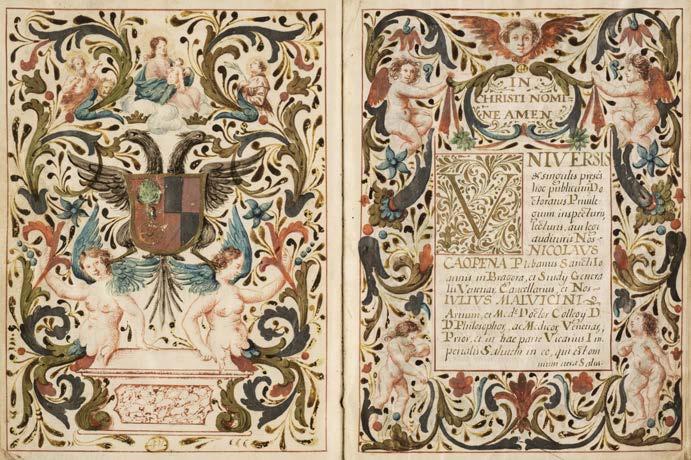 IN
CHRISTI NOMI-
NE AMEN.
VNIVERSIS
& singulis presēs
hoc publicum Do
ctoratus Privile
gium inspecturis
lecturis, aut legi
audituris Nos
NICOLAVS
CAOPENA Plebanus Sancti Io
annis in Bragora, et Studij Genera
lis Venetiar. Cancellarius, et Nos
IVLIVS MALVICINI
Artium, et Med. Doctor Collegij D
D. Philosophor, ac Medicor Venetiar,
Prior, et in hac parte Vicarius Im
perialis Salutem in eo, qui est om
nium vera Salus.